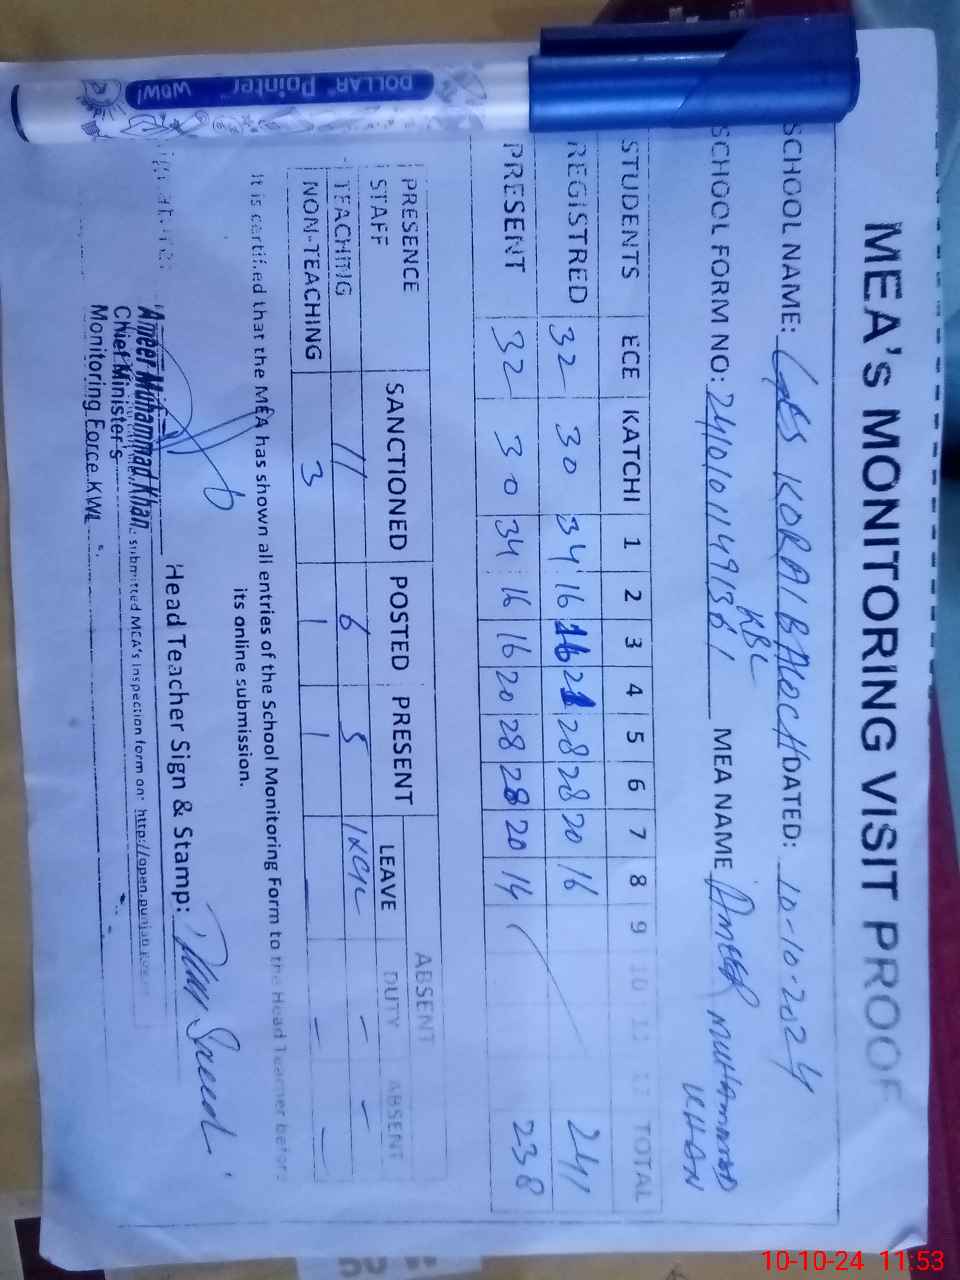 DOLLAR Pointer WOW!
MEA's MONITORING VISIT PROOF
SCHOOL NAME: KORAI BALOCH DATED: 10-10-2024
KBL
SCHOOL FORM NO: MEA NAME Ameer MUHAMMAD
KHAN
STUDENTS ECE KATCHI 1 2 3 4 5 6 7 8 9 10 11 12 TOTAL
REGISTRED 32 30 34 16 16 21 28 28 20 16 241
PRESENT 32 30 34 16 16 20 28 28 20 14 238
PRESENCE ABSENT
STAFF SANCTIONED POSTED PRESENT LEAVE DUTY ABSENT
TEACHING 11 6 5 - -
NON-TEACHING 3 1 1 - - -
It is certified that the MEA has shown all entries of the School Monitoring Form to the Head Teacher before
its online submission.
Head Teacher Sign & Stamp:
Ameer Muhammad Khan submitted MEA's inspection form on: http://open.punjab.gov.pk
Chief Minister's
Monitoring Force KWL
10-10-24 11:53